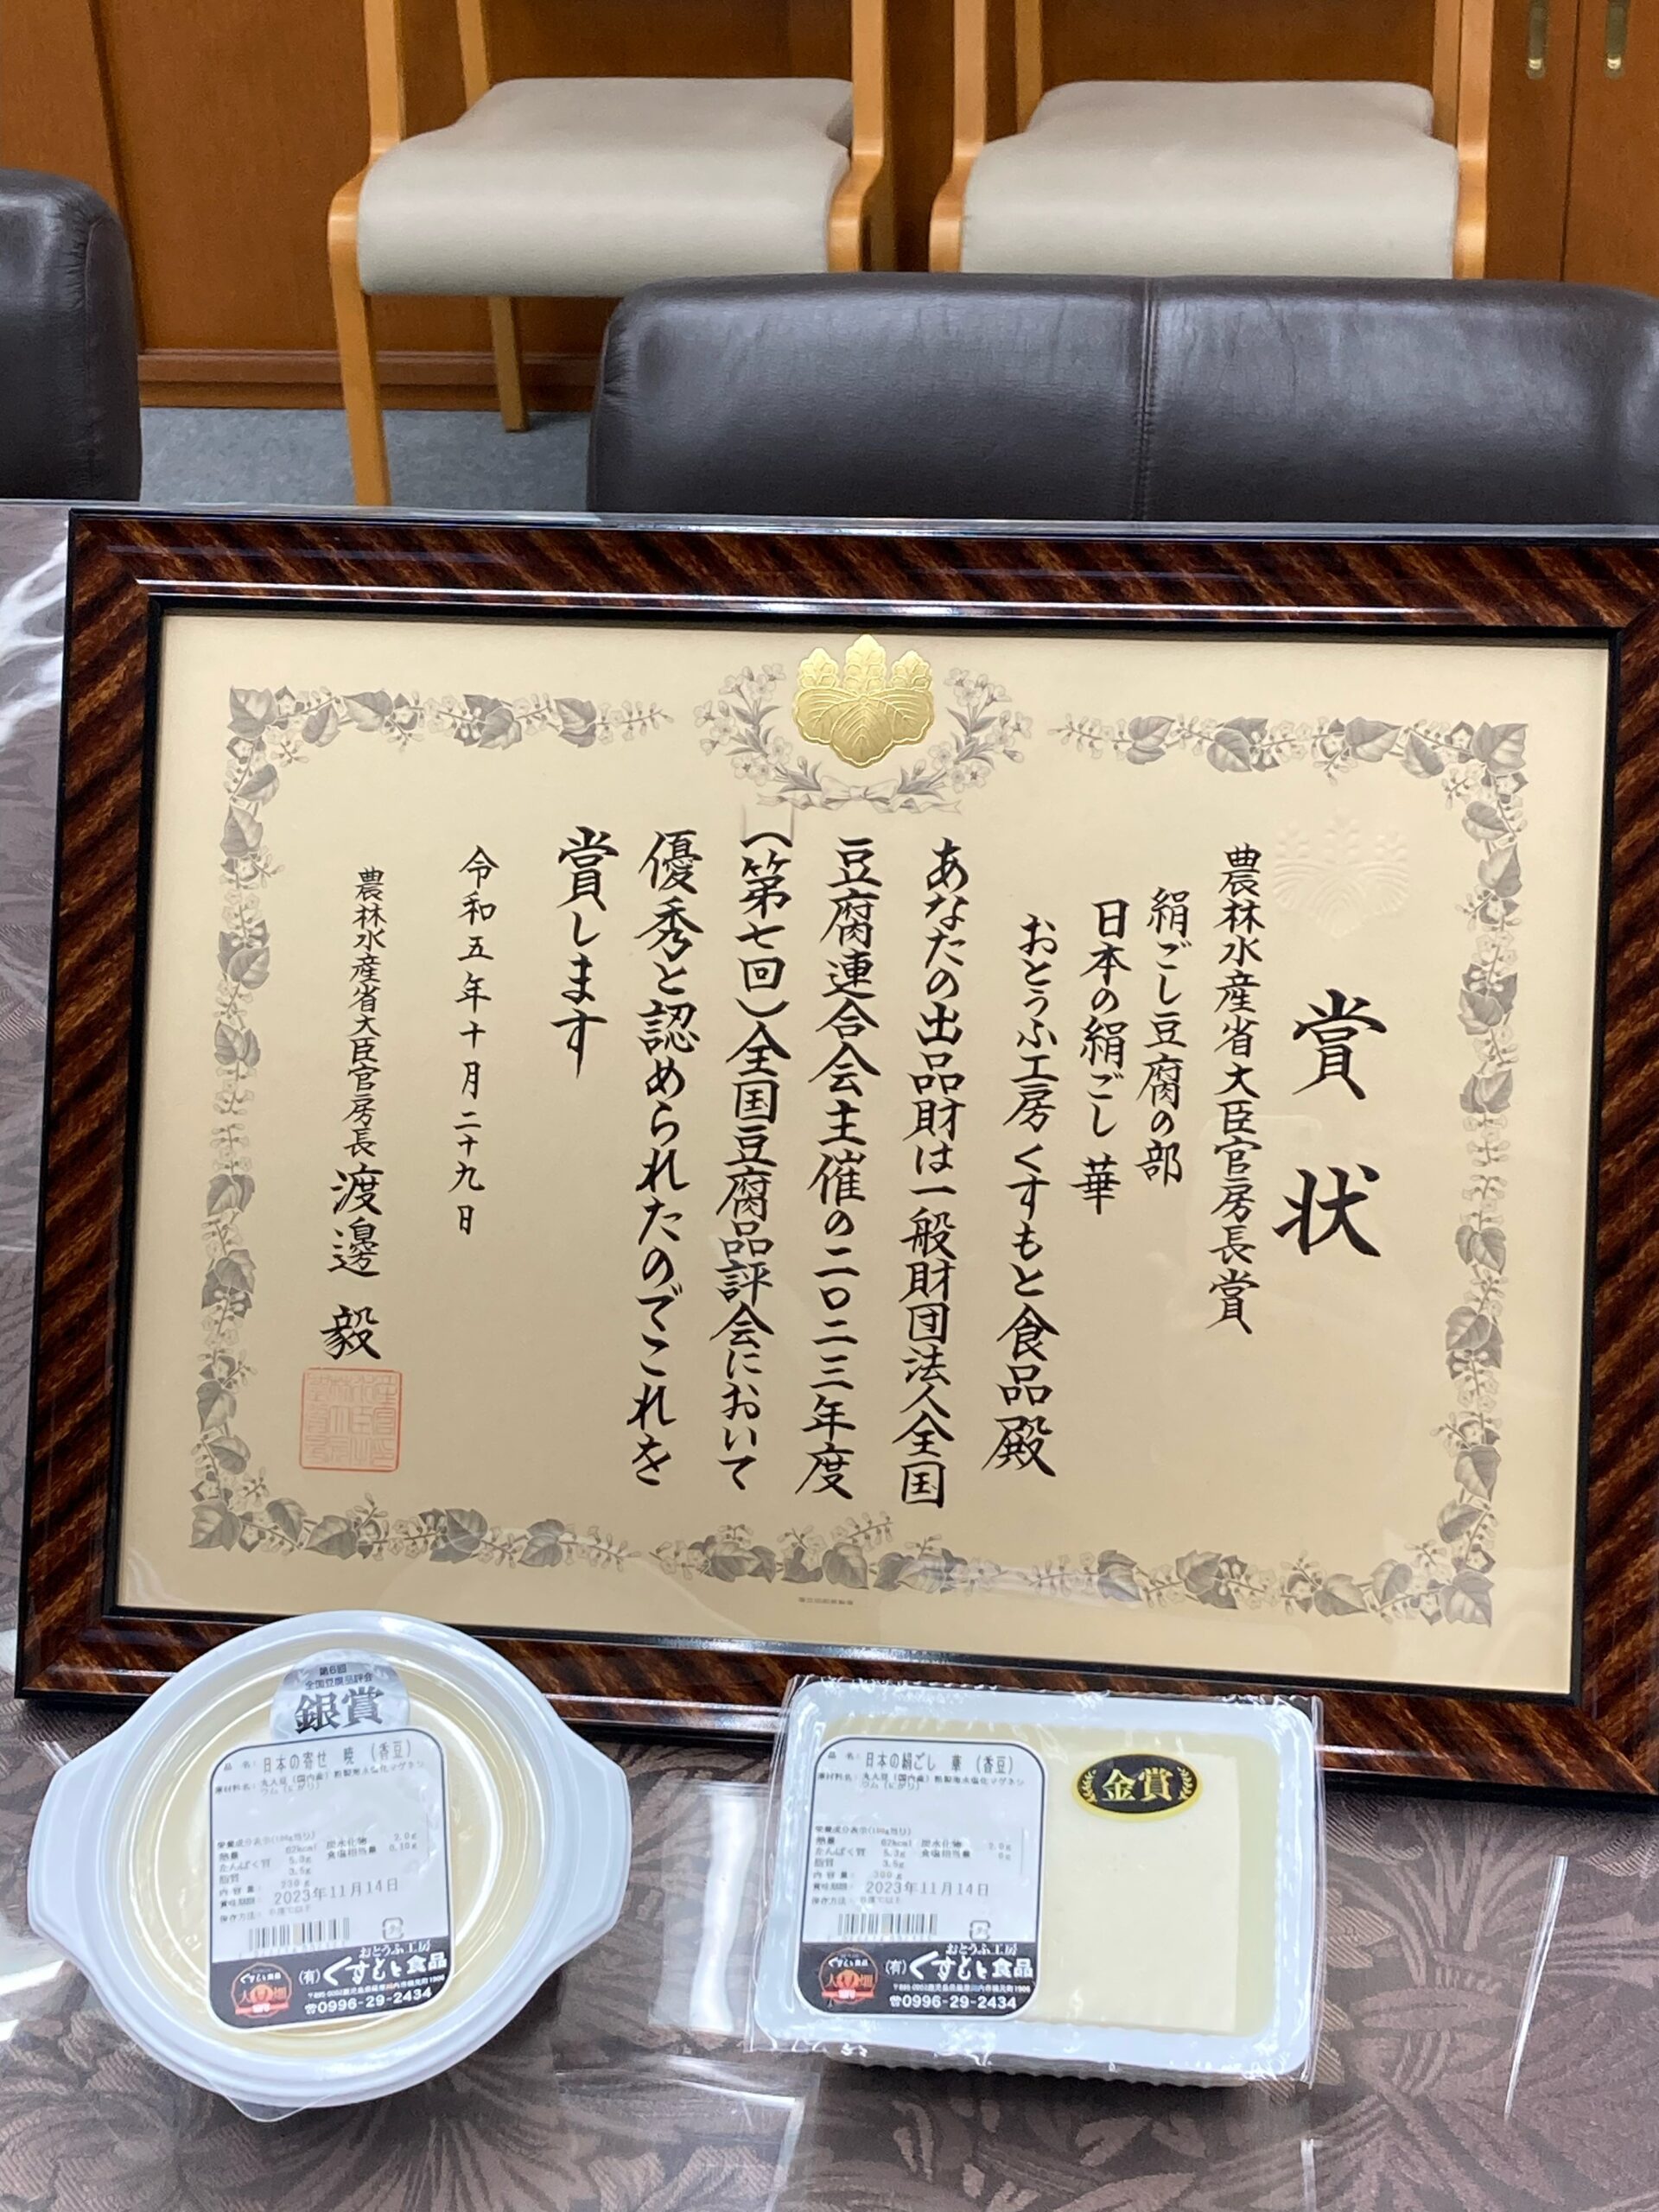 賞状
農林水産省大臣官房長賞
絹ごし豆腐の部
日本の絹ごし 華
おとうふ工房くすもと食品殿
あなたの出品財は一般財団法人全国
豆腐連合会主催の二〇二三年度
(第七回)全国豆腐品評会において
優秀と認められたのでこれを
賞します
令和五年十月二十九日
農林水産省大臣官房長 渡邊 毅
第6回
全国豆腐品評会
銀賞
品 名: 日本の寄せ 暁 (香豆)
原材料名: 丸大豆(国内産)粗製海水塩化マグネシ
ウム(にがり)
栄養成分表示(100g当り)
熱量 62kcal 炭水化物 2.0g
たんぱく質 5.3g 食塩相当量
脂質 3.5g
内容量:
賞味期限: 2023年11月14日
保存方法:
おとうふ工房
(有)くすもと食品
☎0996-29-2434
品 名: 日本の絹ごし 華 (香豆)
原材料名: 丸大豆(国内産)粗製海水塩化マグネシ
ウム(にがり)
栄養成分表示(100g当り)
熱量 62kcal 炭水化物 2.0g
たんぱく質 5.3g 食塩相当量 0g
脂質 3.5g
内容量: 300g
賞味期限: 2023年11月14日
保存方法:
おとうふ工房
(有)くすもと食品
☎0996-29-2434
金賞